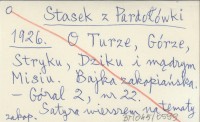 a
Stasek z Pardołówki
1926. O Turze, Górze,
Stryku, Dziku i mądrym
Misiu. Bajka zakopiańska.
– Góral 2, nr 22.
Satyra wierszem na tematy
zakop.